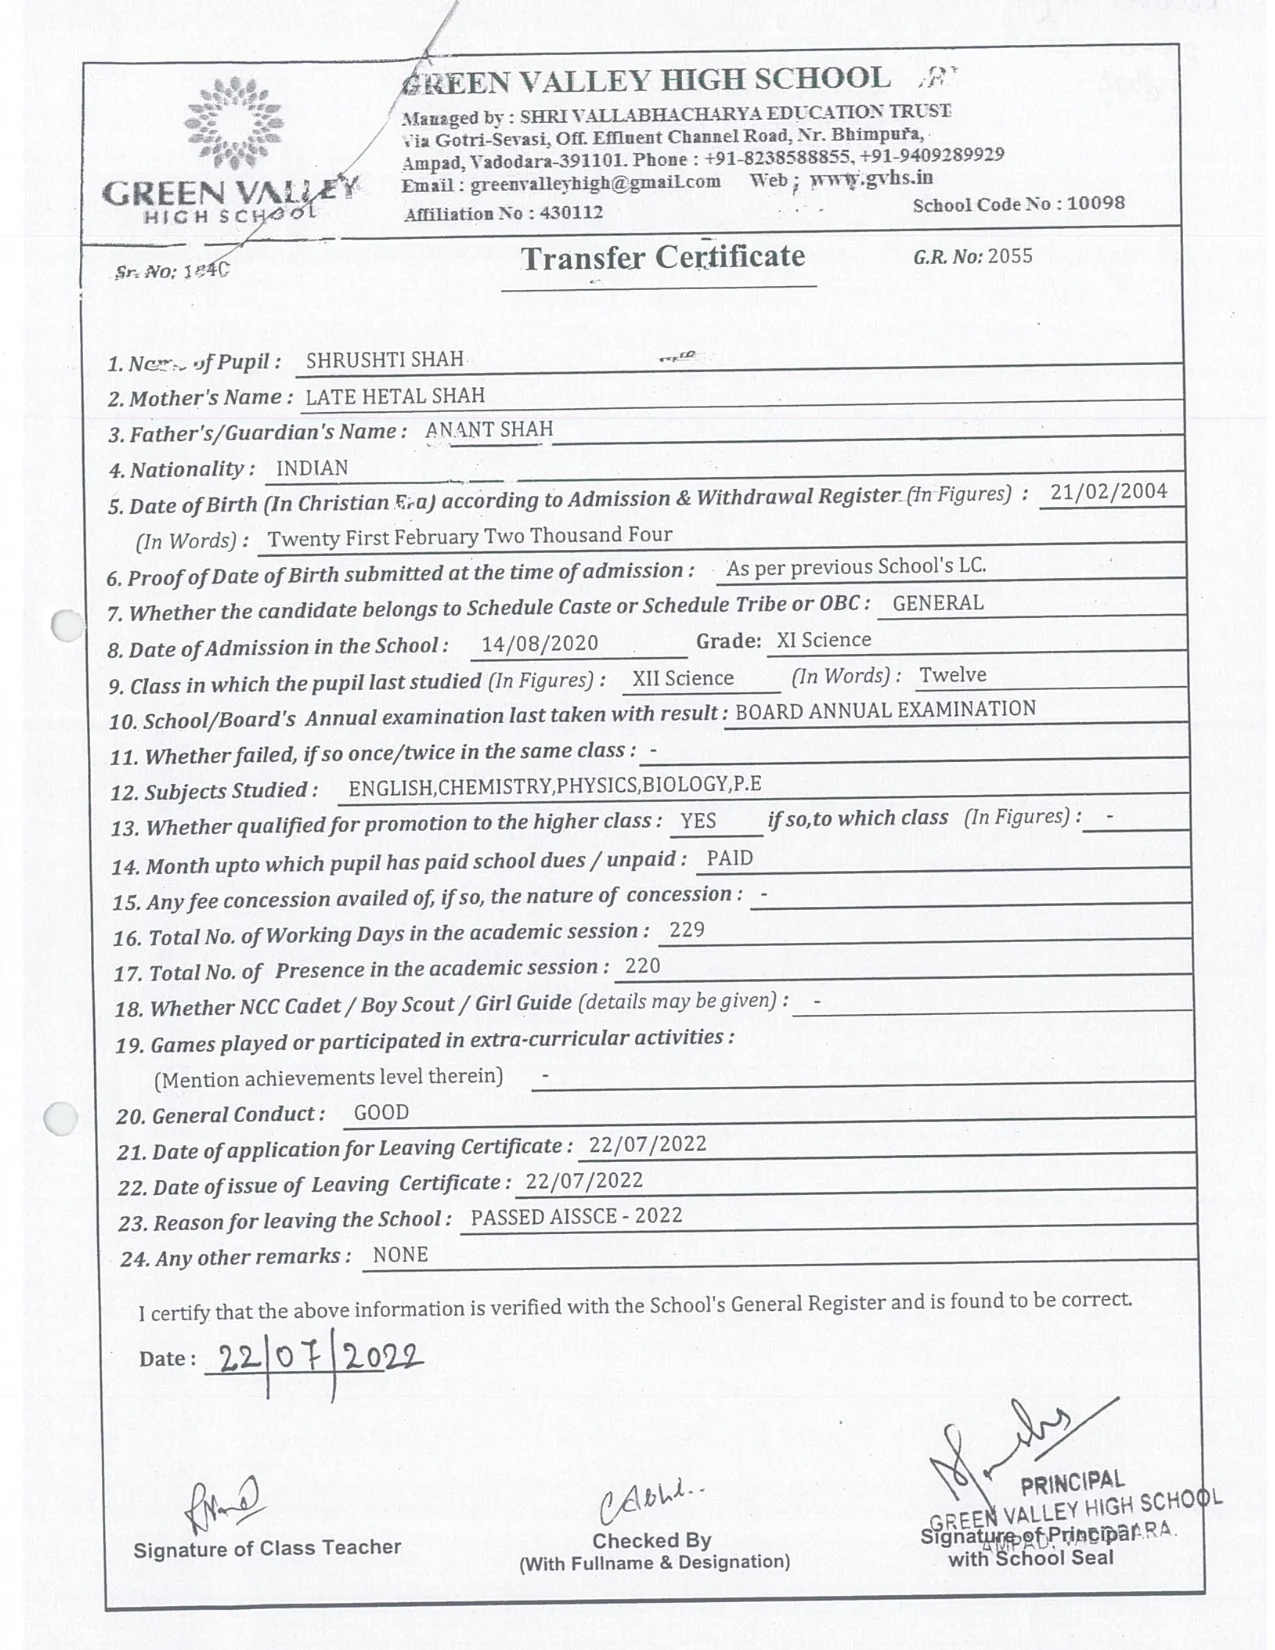 GREEN VALLEY
HIGH SCHOOL
GREEN VALLEY HIGH SCHOOL
Managed by : SHRI VALLABHACHARYA EDUCATION TRUST
Via Gotri-Sevasi, Off. Effluent Channel Road, Nr. Bhimpura,
Ampad, Vadodara-391101. Phone : +91-8238588855, +91-9409289929
Email : greenvalleyhigh@gmail.com Web : www.gvhs.in
Affiliation No : 430112 School Code No : 10098
Sr. No: Transfer Certificate G.R. No: 2055
1. Name of Pupil : SHRUSHTI SHAH
2. Mother's Name : LATE HETAL SHAH
3. Father's/Guardian's Name : ANANT SHAH
4. Nationality : INDIAN
5. Date of Birth (In Christian Era) according to Admission & Withdrawal Register (In Figures) : 21/02/2004
(In Words) : Twenty First February Two Thousand Four
6. Proof of Date of Birth submitted at the time of admission : As per previous School's LC.
7. Whether the candidate belongs to Schedule Caste or Schedule Tribe or OBC : GENERAL
8. Date of Admission in the School : 14/08/2020 Grade: XI Science
9. Class in which the pupil last studied (In Figures) : XII Science (In Words) : Twelve
10. School/Board's Annual examination last taken with result : BOARD ANNUAL EXAMINATION
11. Whether failed, if so once/twice in the same class : -
12. Subjects Studied : ENGLISH,CHEMISTRY,PHYSICS,BIOLOGY,P.E
13. Whether qualified for promotion to the higher class : YES if so,to which class (In Figures) : -
14. Month upto which pupil has paid school dues / unpaid : PAID
15. Any fee concession availed of, if so, the nature of concession : -
16. Total No. of Working Days in the academic session : 229
17. Total No. of Presence in the academic session : 220
18. Whether NCC Cadet / Boy Scout / Girl Guide (details may be given) : -
19. Games played or participated in extra-curricular activities :
(Mention achievements level therein) -
20. General Conduct : GOOD
21. Date of application for Leaving Certificate : 22/07/2022
22. Date of issue of Leaving Certificate : 22/07/2022
23. Reason for leaving the School : PASSED AISSCE - 2022
24. Any other remarks : NONE
I certify that the above information is verified with the School's General Register and is found to be correct.
Date : 22/07/2022
PRINCIPAL
GREEN VALLEY HIGH SCHOOL
AMPAD, VADODARA.
Signature of Class Teacher
Checked By
(With Fullname & Designation)
Signature of Principal
with School Seal